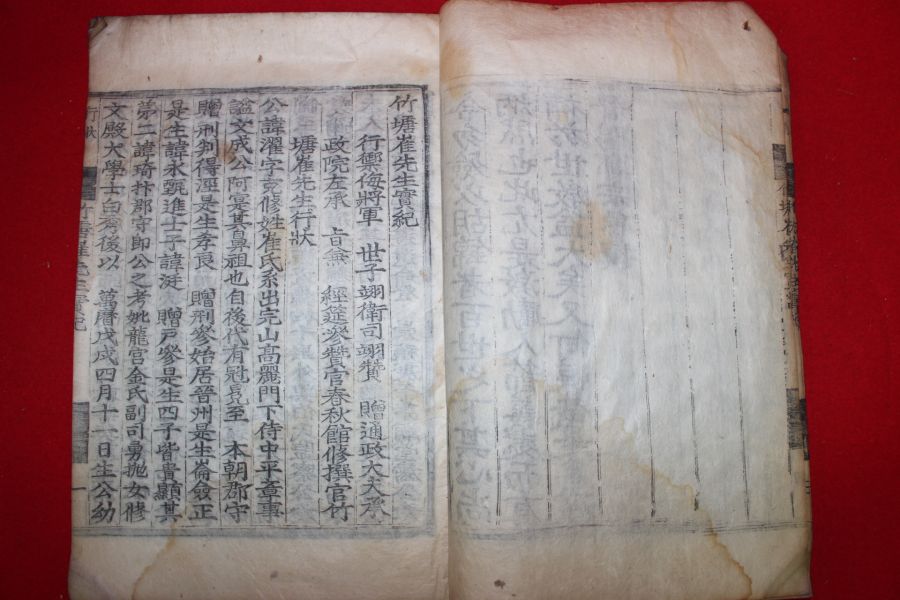 竹塘崔先生實紀
行禦侮將軍 世子翊衛司翊贊 贈通政大夫承
政院左承 旨兼 經筵參贊官春秋館修撰官竹
塘崔先生行狀
公諱濯字克修姓崔氏系出完山高麗門下侍中平章事
謚文成公阿其鼻祖也自後代有冠冕至 本朝郡守
贈刑判得涇是生孝良 贈刑參始居晉州是生崙僉正
是生諱永甄進士子諱涏 贈戶參是生四子皆貴顯其
第二諱琦抃郡守即公之考妣龍宮金氏副司勇拋女修
文殿大學士自後以 萬曆戊戌四月十一日生公幼
行狀
竹塘崔先生實紀
一